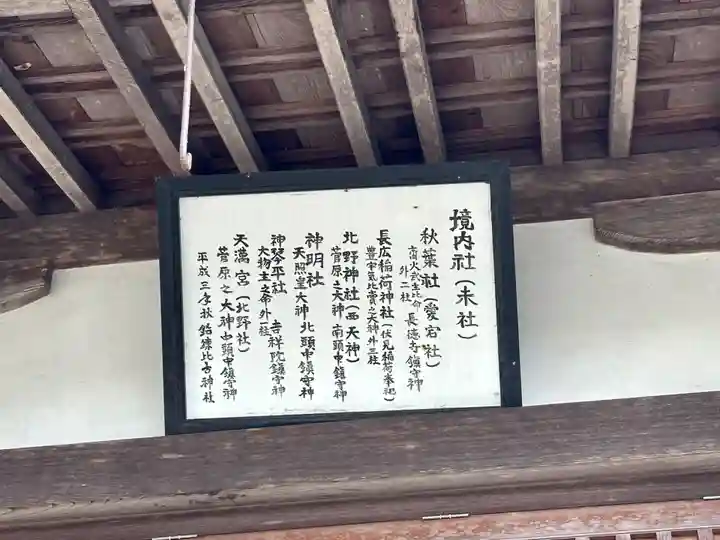 境内社(末社)
秋葉社(愛宕社)
火武主比命 長徳寺鎮守神
外二社
長広稲荷神社(伏見稲荷奉祀)
豊宇気比売之大神外三社
北野神社(西天神)
菅原之大神 南頭中鎮守神
神明社
天照皇大神 北頭中鎮守神
神琴平社 吉祥院鎮守神
大物主之命外一柱
天満宮(北野社)
菅原之大神 中頭中鎮守神
平成三年秋 比古神社